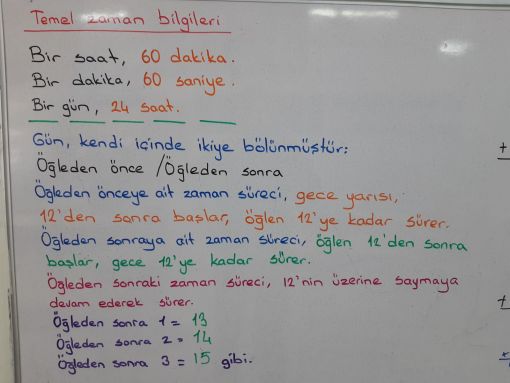 Temel zaman bilgileri
Bir saat, 60 dakika.
Bir dakika, 60 saniye.
Bir gün, 24 saat.
Gün, kendi içinde ikiye bölünmüştür:
Öğleden önce / Öğleden sonra
Öğleden önceye ait zaman süreci, gece yarısı,
12'den sonra başlar, öğlen 12'ye kadar sürer.
Öğleden sonraya ait zaman süreci, öğlen 12'den sonra
başlar, gece 12'ye kadar sürer.
Öğleden sonraki zaman süreci, 12'nin üzerine saymaya
devam ederek sürer.
Öğleden sonra 1 = 13
Öğleden sonra 2 = 14
Öğleden sonra 3 = 15 gibi.